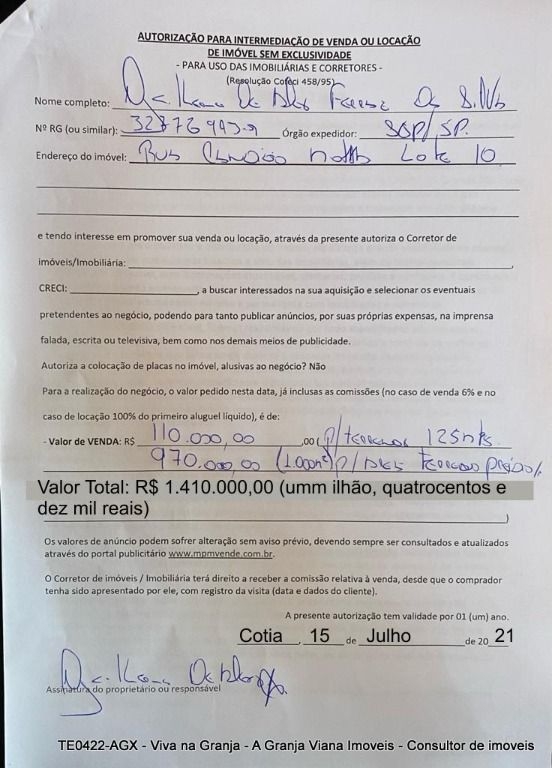 AUTORIZAÇÃO PARA INTERMEDIAÇÃO DE VENDA OU LOCAÇÃO
DE IMÓVEL SEM EXCLUSIVIDADE
- PARA USO DAS IMOBILIÁRIAS E CORRETORES -
(Resolução Cofeci 458/95)
Nome completo:
Nº RG (ou similar): Órgão expedidor: SSP/SP.
Endereço do imóvel: Rua Lote 10
e tendo interesse em promover sua venda ou locação, através da presente autoriza o Corretor de
imóveis/Imobiliária: ,
CRECI: , a buscar interessados na sua aquisição e selecionar os eventuais
pretendentes ao negócio, podendo para tanto publicar anúncios, por suas próprias expensas, na imprensa
falada, escrita ou televisiva, bem como nos demais meios de publicidade.
Autoriza a colocação de placas no imóvel, alusivas ao negócio? Não
Para a realização do negócio, o valor pedido nesta data, já inclusas as comissões (no caso de venda 6% e no
caso de locação 100% do primeiro aluguel líquido), é de:
- Valor de VENDA: R$ 110.000,00 ,00 ( p/ terrenos 125mts.
970.000,00 (1.000m²) p/
Valor Total: R$ 1.410.000,00 (umm ilhão, quatrocentos e
dez mil reais)
)
Os valores de anúncio podem sofrer alteração sem aviso prévio, devendo sempre ser consultados e atualizados
através do portal publicitário www.mpmvende.com.br.
O Corretor de imóveis / Imobiliária terá direito a receber a comissão relativa à venda, desde que o comprador
tenha sido apresentado por ele, com registro da visita (data e dados do cliente).
A presente autorização tem validade por 01 (um) ano.
Cotia , 15 de Julho de 20 21
Assinatura do proprietário ou responsável
TE0422-AGX - Viva na Granja - A Granja Viana Imoveis - Consultor de imoveis